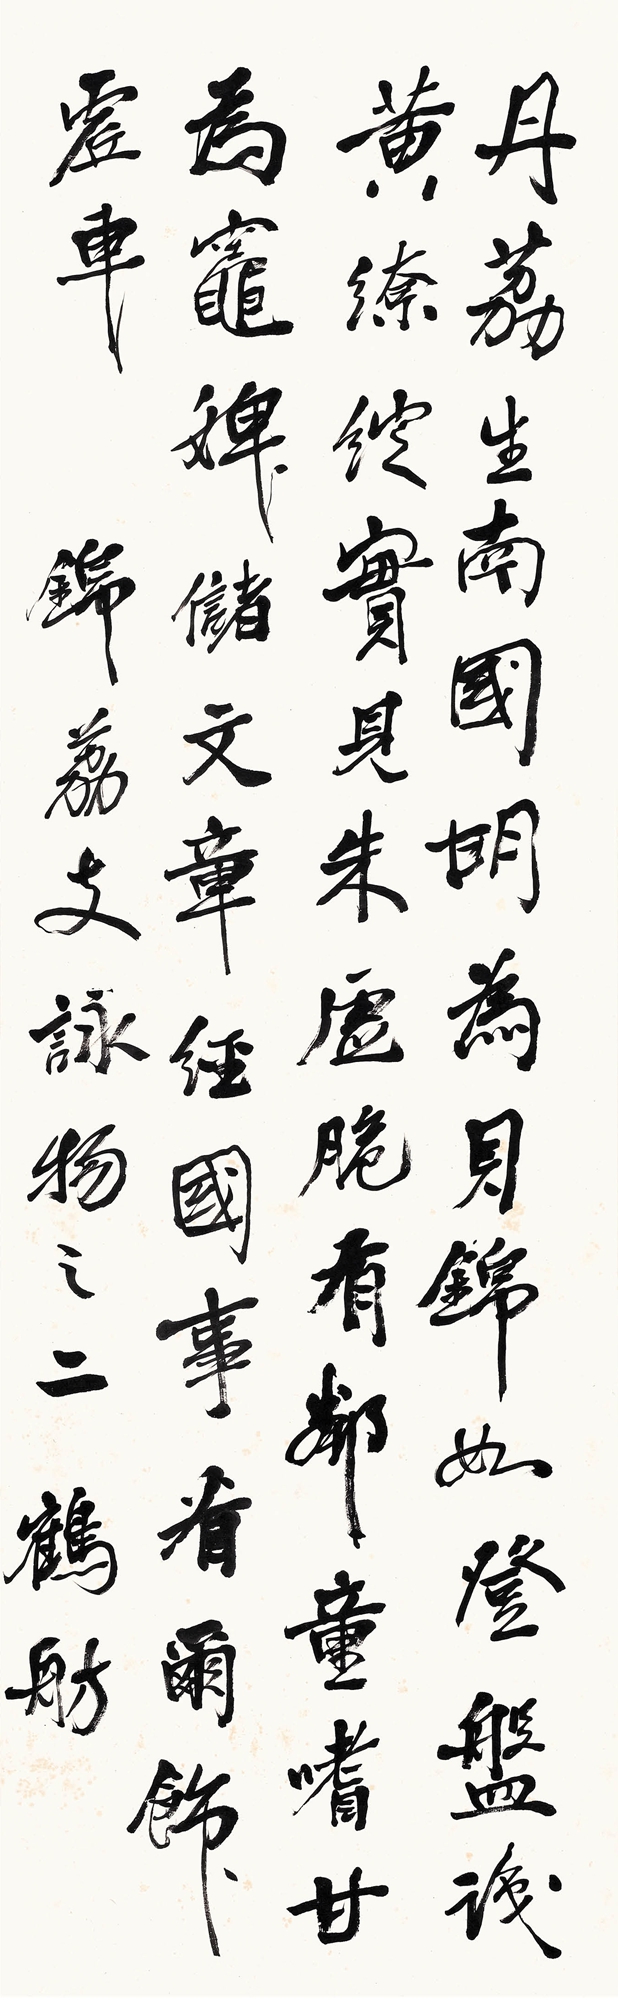 丹荔生南國胡為貝錦如登盤識
黃繚綻實見朱虛脆有鄰童嗜甘
為竈婢儲文章經國事看爾飾
虛車 錦荔支詠物之二 鶴舫